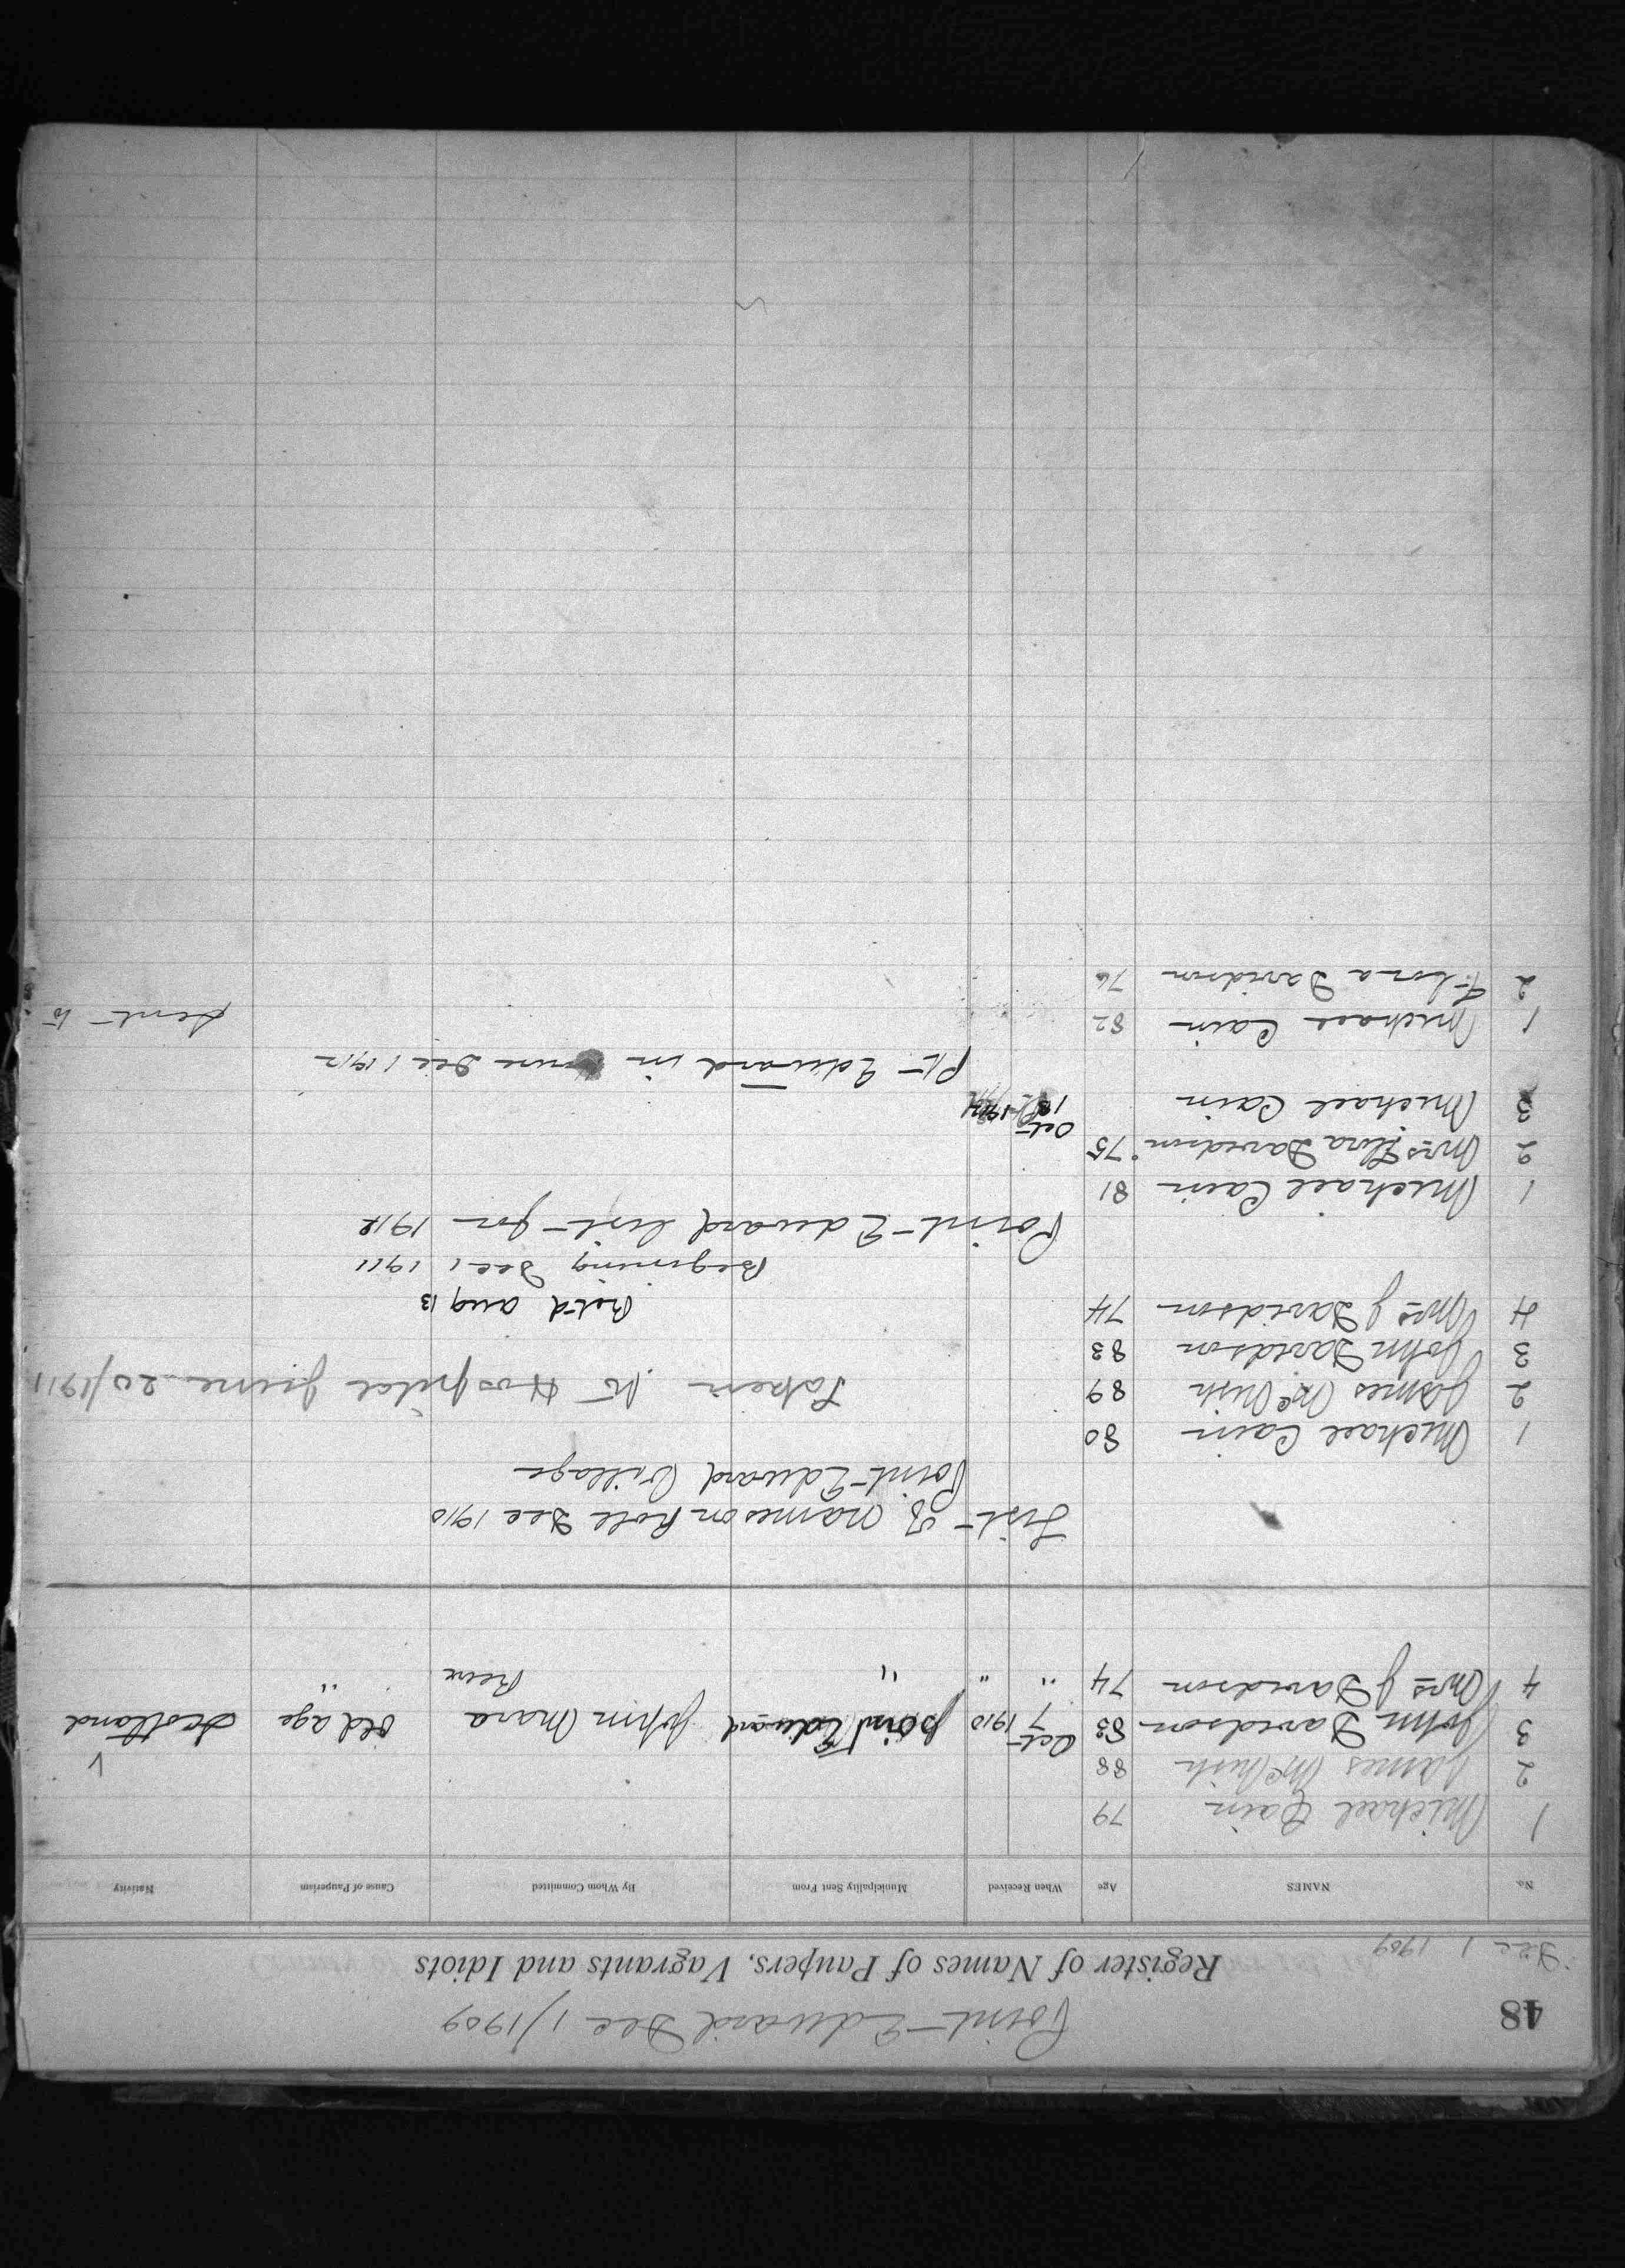 48 Point Edward Dec 1/1909
Dec 1 1909 Register of Names of Paupers, Vagrants and Idiots
No. NAMES Age When Received Municipality Sent From By Whom Committed Cause of Pauperism Nativity
1 Michael Cain 79
2 James McNish 88
3 John Davidson 83 Oct 7 1910 point Edward John Mara old age Scotland
4 Mrs J Davidson 74 " " " Reeve "
List of names on Roll Dec 1910
Point Edward Village
1 Michael Cain 80
2 James McNish 89 Taken to Hospital June 20/1911
3 John Davidson 83
4 Mrs J Davidson 74 Ret'd aug 13
Begining Dec 1 1911
Point Edward list for 1912
1 Michael Cain 81
2 Mrs Flora Davidson 75
3 Michael Cain Oct 18
Pt Edward in Dec 1 1912
1 Michael Cain 82 sent to
2 Flora Davidson 76